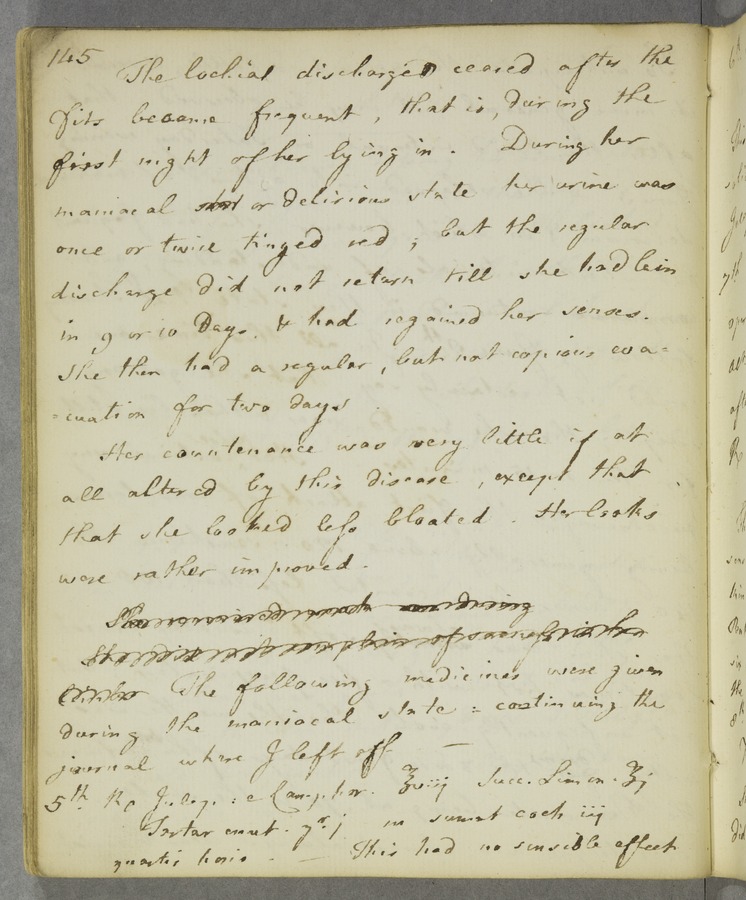 145
The lochial discharge ceased after the
Fits became frequent, that is, during the
first night of her lying in. During her
maniacal or delirious state her urine was
once or twice tinged red; but the regular
discharge did not return till she had lein
in 9 or 10 Days. & had regained her senses.
She then had a regular, but not copious eva=
=cuation for two days.
Her countenance was very little if at
all altered by this disease, except that
that she looked less bloated. Her looks
were rather improved.
The following medicines were given
during the maniacal state = continuing the
journal where I left off —
5th Rp Julep: e Camphor. ℥viij Succ. Limon. ℥j
Tartar emet. gr. j m sumat coch iij
quartis horis. — This had no sensible effect